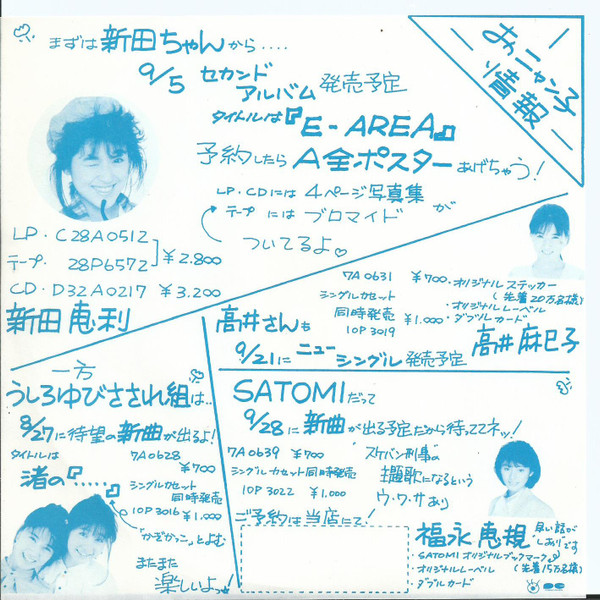 おニャン子
情報
まずは新田ちゃんから‥‥
9/5 セカンド
アルバム発売予定
タイトルは『E-AREA』
予約したらA全ポスターあげちゃう！
LP・CDには4ページ写真集
テープにはブロマイドが
ついてるよ♡
LP・C28A0512
テープ. 28P6572 ￥2.800
CD・D32A0217 ￥3.200
新田恵利
高井さんも
9/21にニュー
シングル発売予定
7A0631 ￥700
シングルカセット
同時発売 ￥1.000
10P3019
・オリジナルステッカー
(先着20万名様)
・オリジナルレーベル
・ダブルカード
高井麻巳子
一方
うしろゆびさされ組は‥
8/27に待望の新曲が出るよ！
タイトルは
渚の『‥‥‥』
7A0628
￥700
シングルカセット
同時発売
10P3016 ￥1.000
「かぎかっこ」とよむ
またまた
楽しいよっ！
SATOMIだって
9/28に新曲が出る予定だから待っててネッ！
7A0639 ￥700
シングルカセット同時発売
10P3022 ￥1.000
スケバン刑事の
主題歌になるという
ウ・ワ・サあり
ご予約は当店にて！
福永恵規
早い話が
しありです
・SATOMIオリジナルブックマーク
・オリジナルレーベル
(先着15万名様)
・ダブルカード